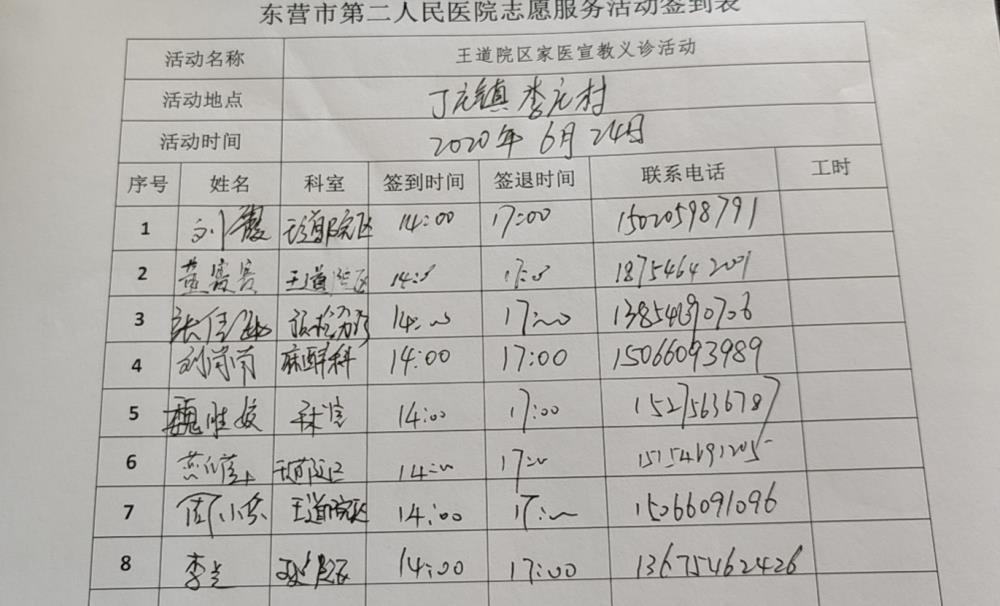 东营市第二人民医院志愿服务活动签到表
活动名称 王道院区家医宣教义诊活动
活动地点 丁庄镇李庄村
活动时间 2020年6月24日
序号 姓名 科室 签到时间 签退时间 联系电话 工时
1 刘霞 王道院区 14:00 17:00 15020598791
2 董震震 王道院区 14:00 17:00 18754642001
3 14:00 17:00
4 刘岗岗 麻醉科 14:00 17:00 15066093989
5 魏胜姣 14:00 17:00 15275636787
6 王道院区 14:00 17:00 15154691205
7 周小兵 王道院区 14:00 17:00 15066091096
8 李兰 王道院区 14:00 17:00 13675462426